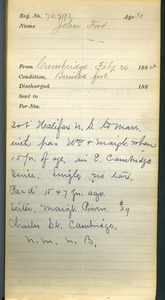 Reg. No. 70,792 Age 30
Name John Ford
From Cambridge Feb. 26 1884
Condition, Bruised foot.
Discharged 188
Sent to
For Nos.
30 b Halifax N. S. to man,
with par. Wm & Margt. when
15 yrs. of age, in E. Cambridge
since. Single, no tax.
Par d 15 & 7 yrs. ago.
Sister, Margt. 89
Charles St. Cambridge,
N. M. N. B.